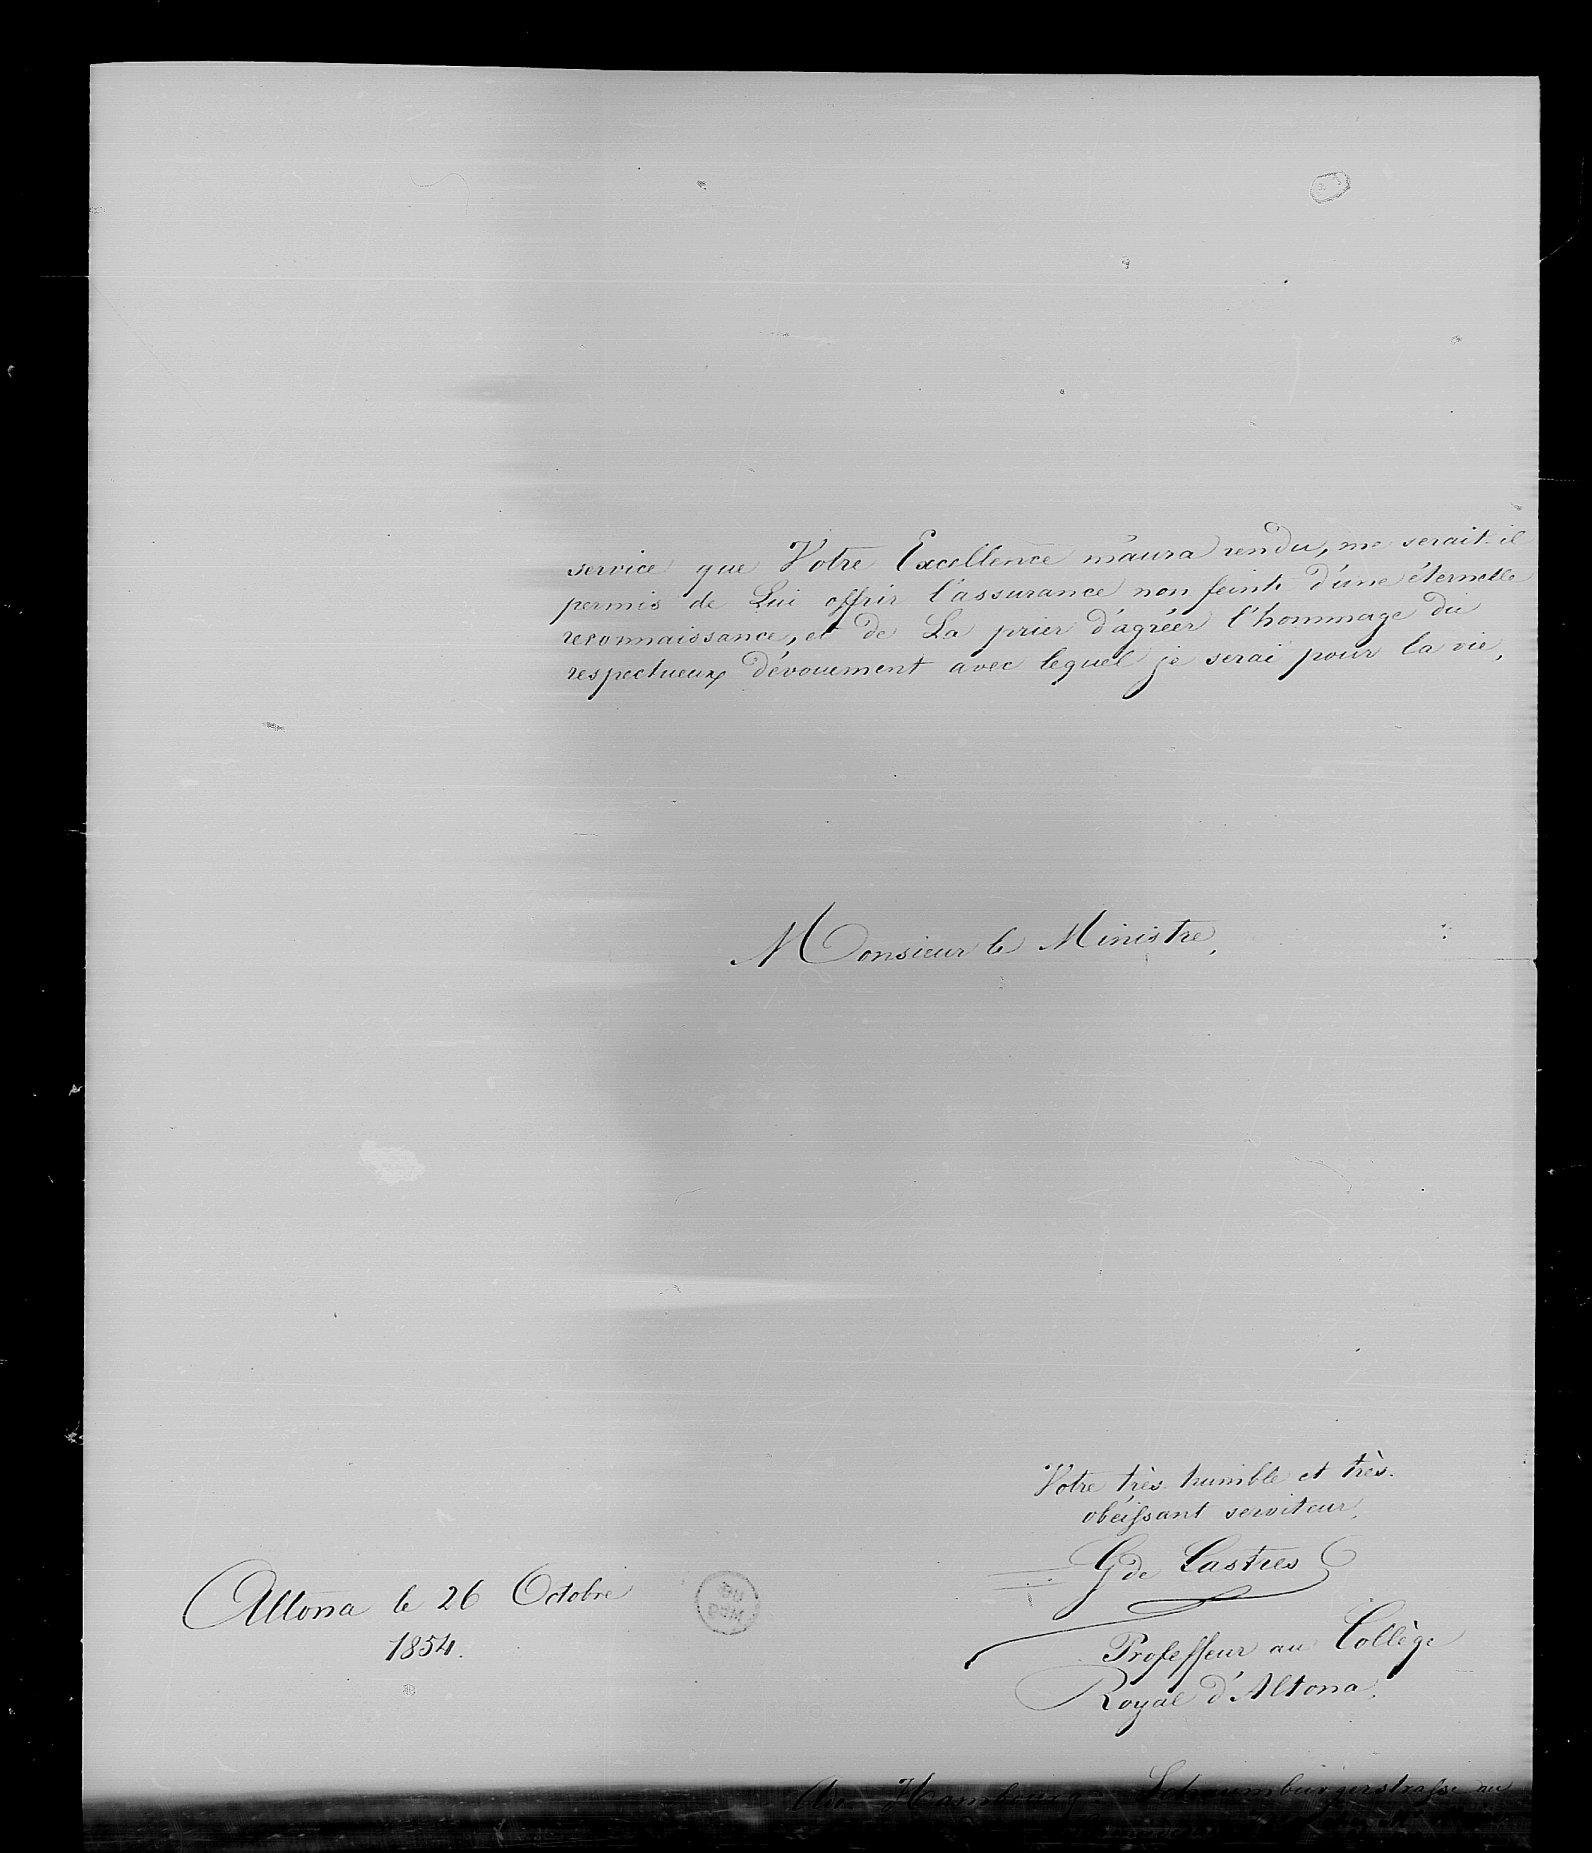 service que Votre Excellence m'aura rendu, me serait-il
permis de Lui offrir l'assurance non feinte d'une éternelle
reconnaissance, et de La prier d'agréer l'hommage du
respectueux dévouement avec lequel je serai pour la vie,
Monsieur le Ministre,
Votre très-humble et très-
obéissant serviteur,
G de Castres
Professeur au Collège
Royal d'Altona.
Altona le 26 Octobre
1854.
Hambourg Schaumburgerstrasse